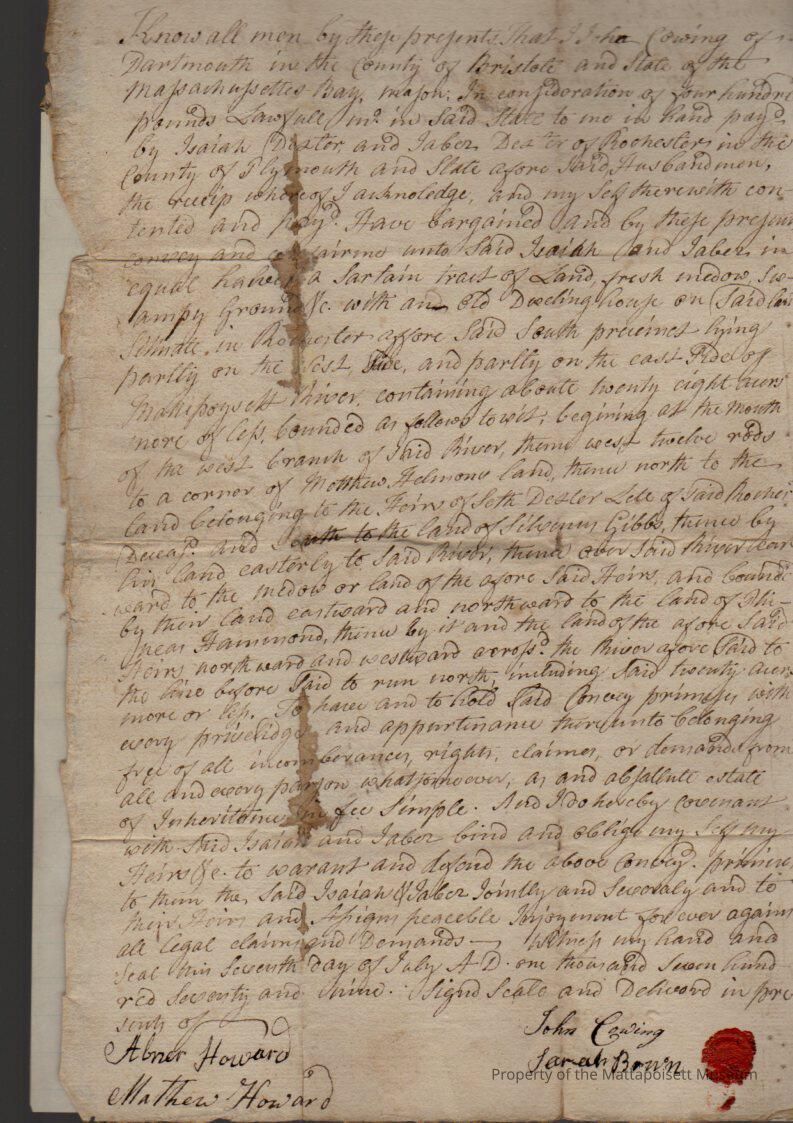 Know all men by these presents That I John Cowing of
Dartmouth in the County of Bristole and State of the
Massachussettes Bay, major: In consideration of four hundre
pounds Lawfull mº. in Said State to me in hand payd
by Isaiah Dexter and Jabez Dexter of Rochester in the
County of Plymouth and State afore Said, Husbandmen,
the receip whereof I acknoledge, and my Self therewith con-
tented and payd. Have bargained and by these presents
convey and unto Said Isaiah and Jabez in
equal halves a Sartain tract of Land, fresh medow, Sw-
ampy Ground &c. with an old Dweling house on Said
Situate in Rochester affore Said South precinct lying
partly on the West Side, and partly on the east Side of
River, containing aboute twenty eight acurs
more or less, bounded as follows to wit; begining at the mouth
of the west branch of Said River, thence west twelve rods
to a corner of Matthew land, thence north to the
land belonging to the Heirs of Seth Dexter Late of Said Roches
Deceasd. and South to the land of Silvenus Gibbs, thence by
his land easterly to Said River, thence over Said River
ward to the medow or land of the afore Said Heirs, and bounde
by their land eastward and northward to the land of
Hammond, thence by it and the land of the afore Said
Heirs northward and westward acrossd. the River afore Said to
the line before Said to run north, including Said twenty acurs
more or less. To have and to hold Said Convey primises with
every priveledge and appurtinance there unto belonging
free of all incomberances, rights, claimes, or demands from
all and every parson whatsomever, as and absallute estate
of Inheritance in fee Simple. And I do hereby covenant
with Said Isaiah and Jabez bind and oblige my Self my
Heirs &c. to warant and defend the above Convey. primises
to them the Said Isaiah & Jabez Jointly and Severaly and to
their Heirs and Assigns peaceble Injoyment for ever against
all legal claims and Demands — Witness my hand and
Seal this Seventh day of July A D. one thousand Seven hund
red Seventy and nine. Signd Seale and Deliverd in pre
sents of
John Cowing
Abner Howard
Sarah Bown
Property of the Mattapoisett Museum
Mathew Howard